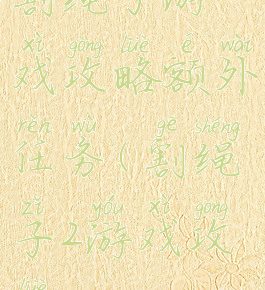 割绳子游
xì gōng lüè é wài
戏攻略额外
rèn wù gē shéng
任务(割绳
zǐ yóu xì gōng
子2游戏攻
lüè